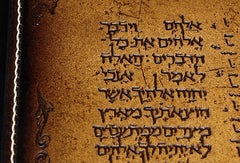 וידבר אלהים
אלהים את כל
הדברים האלה
לאמר אנכי
יהוה אלהיך אשר
הוצאתיך מארץ
מצרים מבית עבדים
לא יהיה לך אלהים